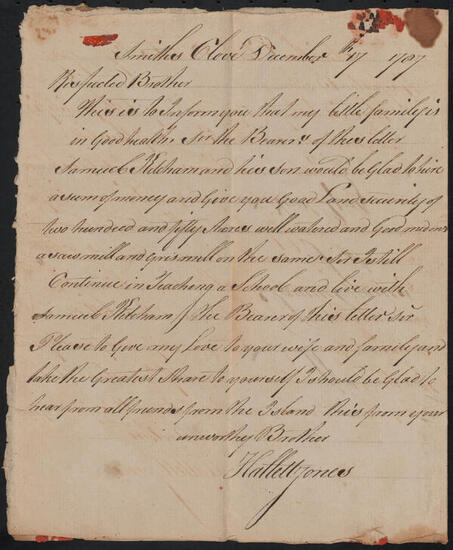 Smiths Clove December th 17 1787
Respected Brother
This is to Inform you that my little family is
in Good health, Sir the Bearer of this letter
Samuel Ketcham and his son would be Glad to hire
a sum of money and Give you Good Land security of
two hundred and fifty Acres well watered and Good
a saw mill and Gris mill on the same Sir I still
Continue in Teaching a School and live with
Samuel Ketcham / The Bearer of this letter Sir
Please to Give my Love to your wife and family and
take the Greatest Share to yourself I should be Glad to
hear from all friends from the Island this from your
unworthy Brother
Hallett Jones